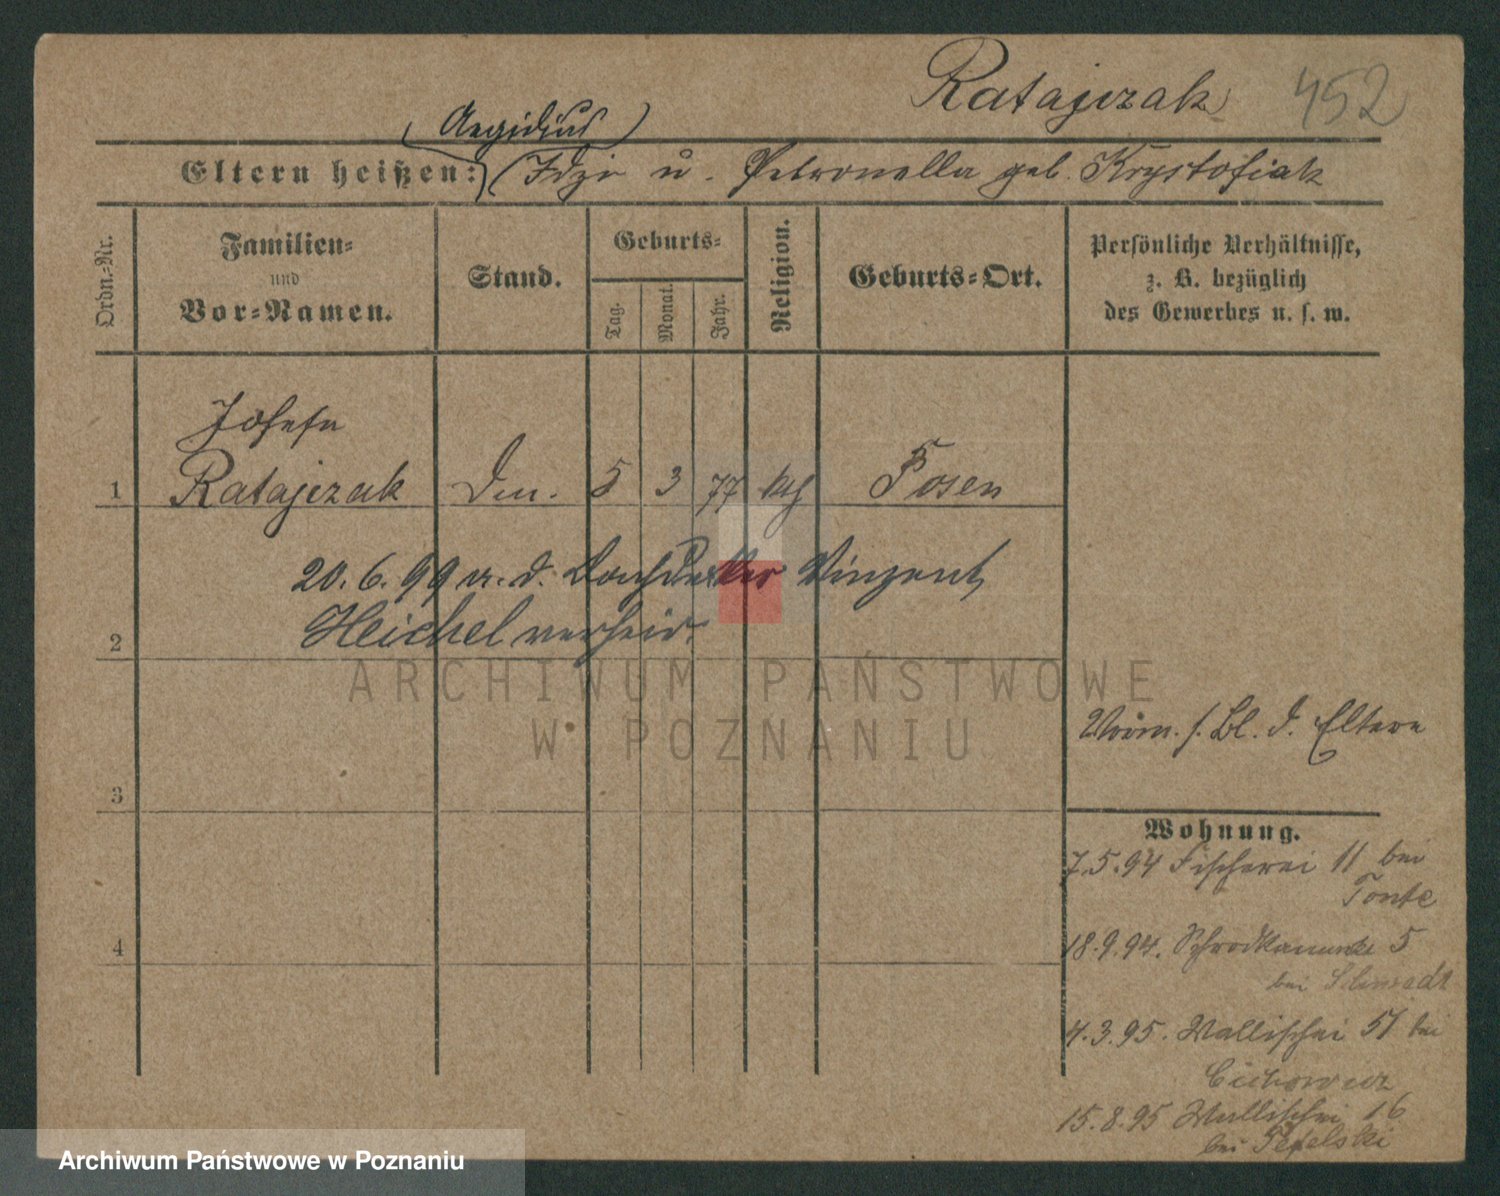 Ratajczak 452
(Aegidius)
Eltern heißen: (Idzi u. Petronella geb. Krystofiak
Ordn.-Nr.
Familien-
und
Vor-Namen.
Stand.
Geburts-
Tag.
Monat.
Jahr.
Religion.
Geburts-Ort.
Persönliche Verhältnisse,
z. B. bezüglich
des Gewerbes u. s. w.
Josefa
1 Ratajczak 5 3 77 kth Posen
20. 6. 99 a. d. Vinzent
2 Heichel verheir.
ARCHIWUM PAŃSTWOWE
W POZNANIU
3
4
Vorm. s. Bl. d. Eltern
Wohnung.
7.5.94 Fischerei 11 bei
Tonke
18.9.94. 5
bei
4.3.95. Wallischei 51 bei
Cichowicz
15.8.95 Wallischei 16
bei
Archiwum Państwowe w Poznaniu